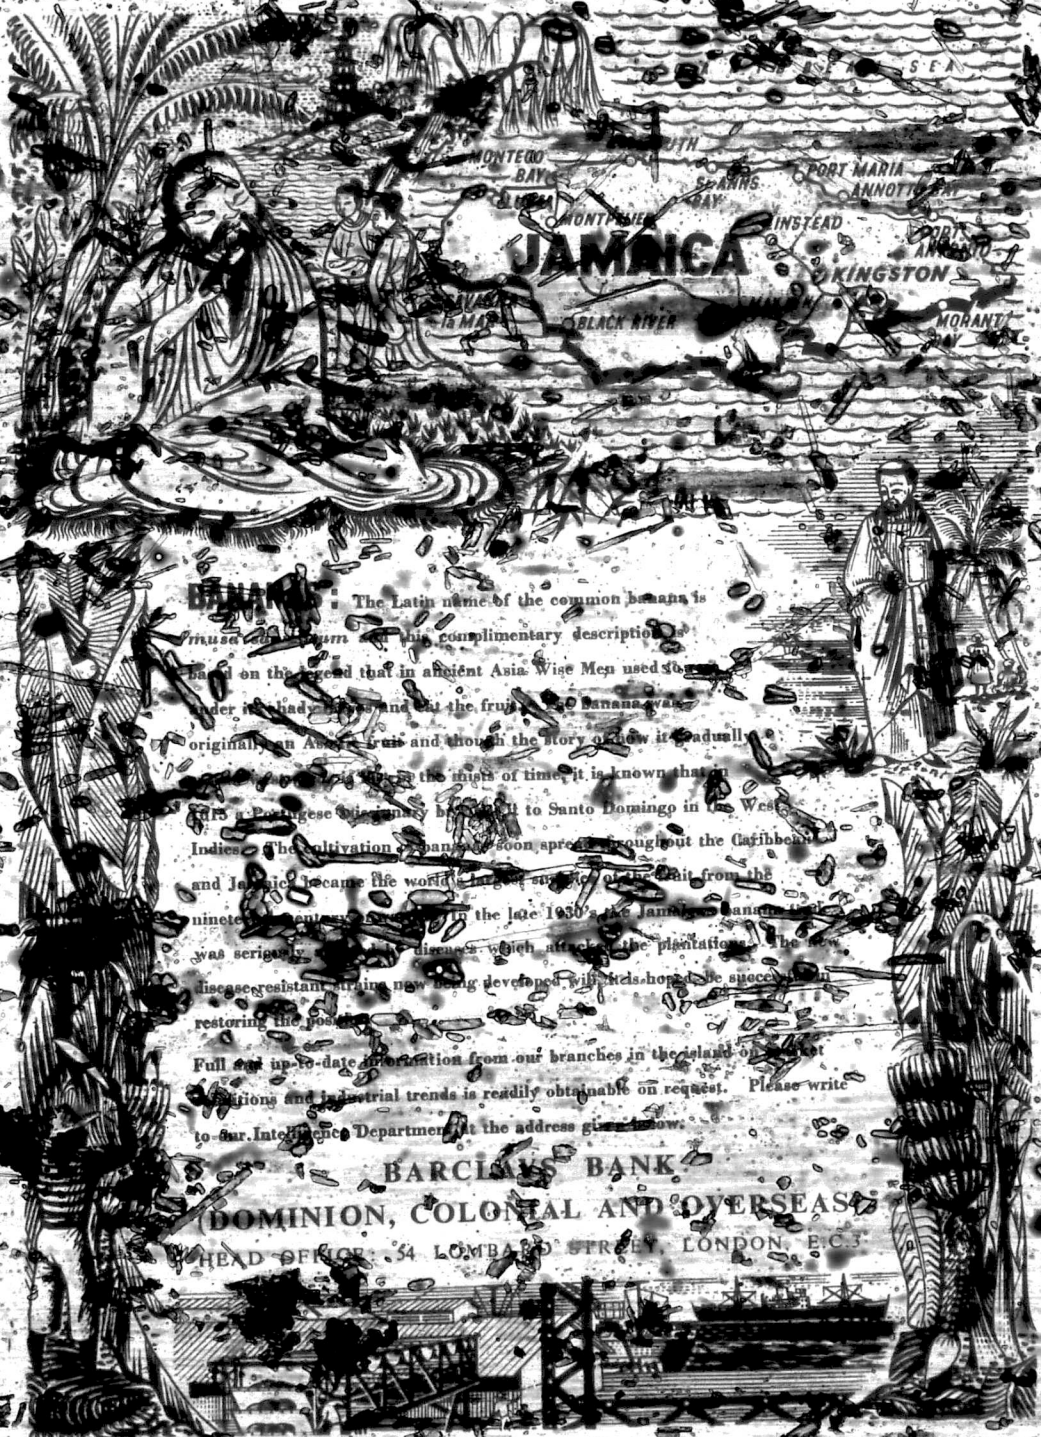 SEA
MONTEGO
BAY
PORT MARIA
ST ANNS
BAY
ANNOTTO BAY
MONTPELIER
PORT
ANTONIO
JAMAICA
KINGSTON
la MAR
BLACK RIVER
MORANT
BAY
BANANAS: The Latin name of the common banana is
musa and this complimentary description is
based on the legend that in ancient Asia Wise Men used to
under its shady and eat the fruit. The banana was
originally an Asiatic fruit and though the story of how it gradually
the mists of time, it is known that in
a Portugese missionary to Santo Domingo in the West
Indies. The cultivation soon spread throughout the Caribbean
and Jamaica became the world's largest of the fruit from the
nineteenth century In the late 1930's the Jamaican banana
was seriously diseases which attacked the plantations. The new
disease-resistant strains now being developed will, it is hoped, be successful in
restoring the
Full and up-to-date information from our branches in the island on market
conditions and industrial trends is readily obtainable on request. Please write
to our Intelligence Department at the address given below.
BARCLAYS BANK
(DOMINION, COLONIAL AND OVERSEAS)
HEAD OFFICE: 54 LOMBARD STREET, LONDON, E.C.3